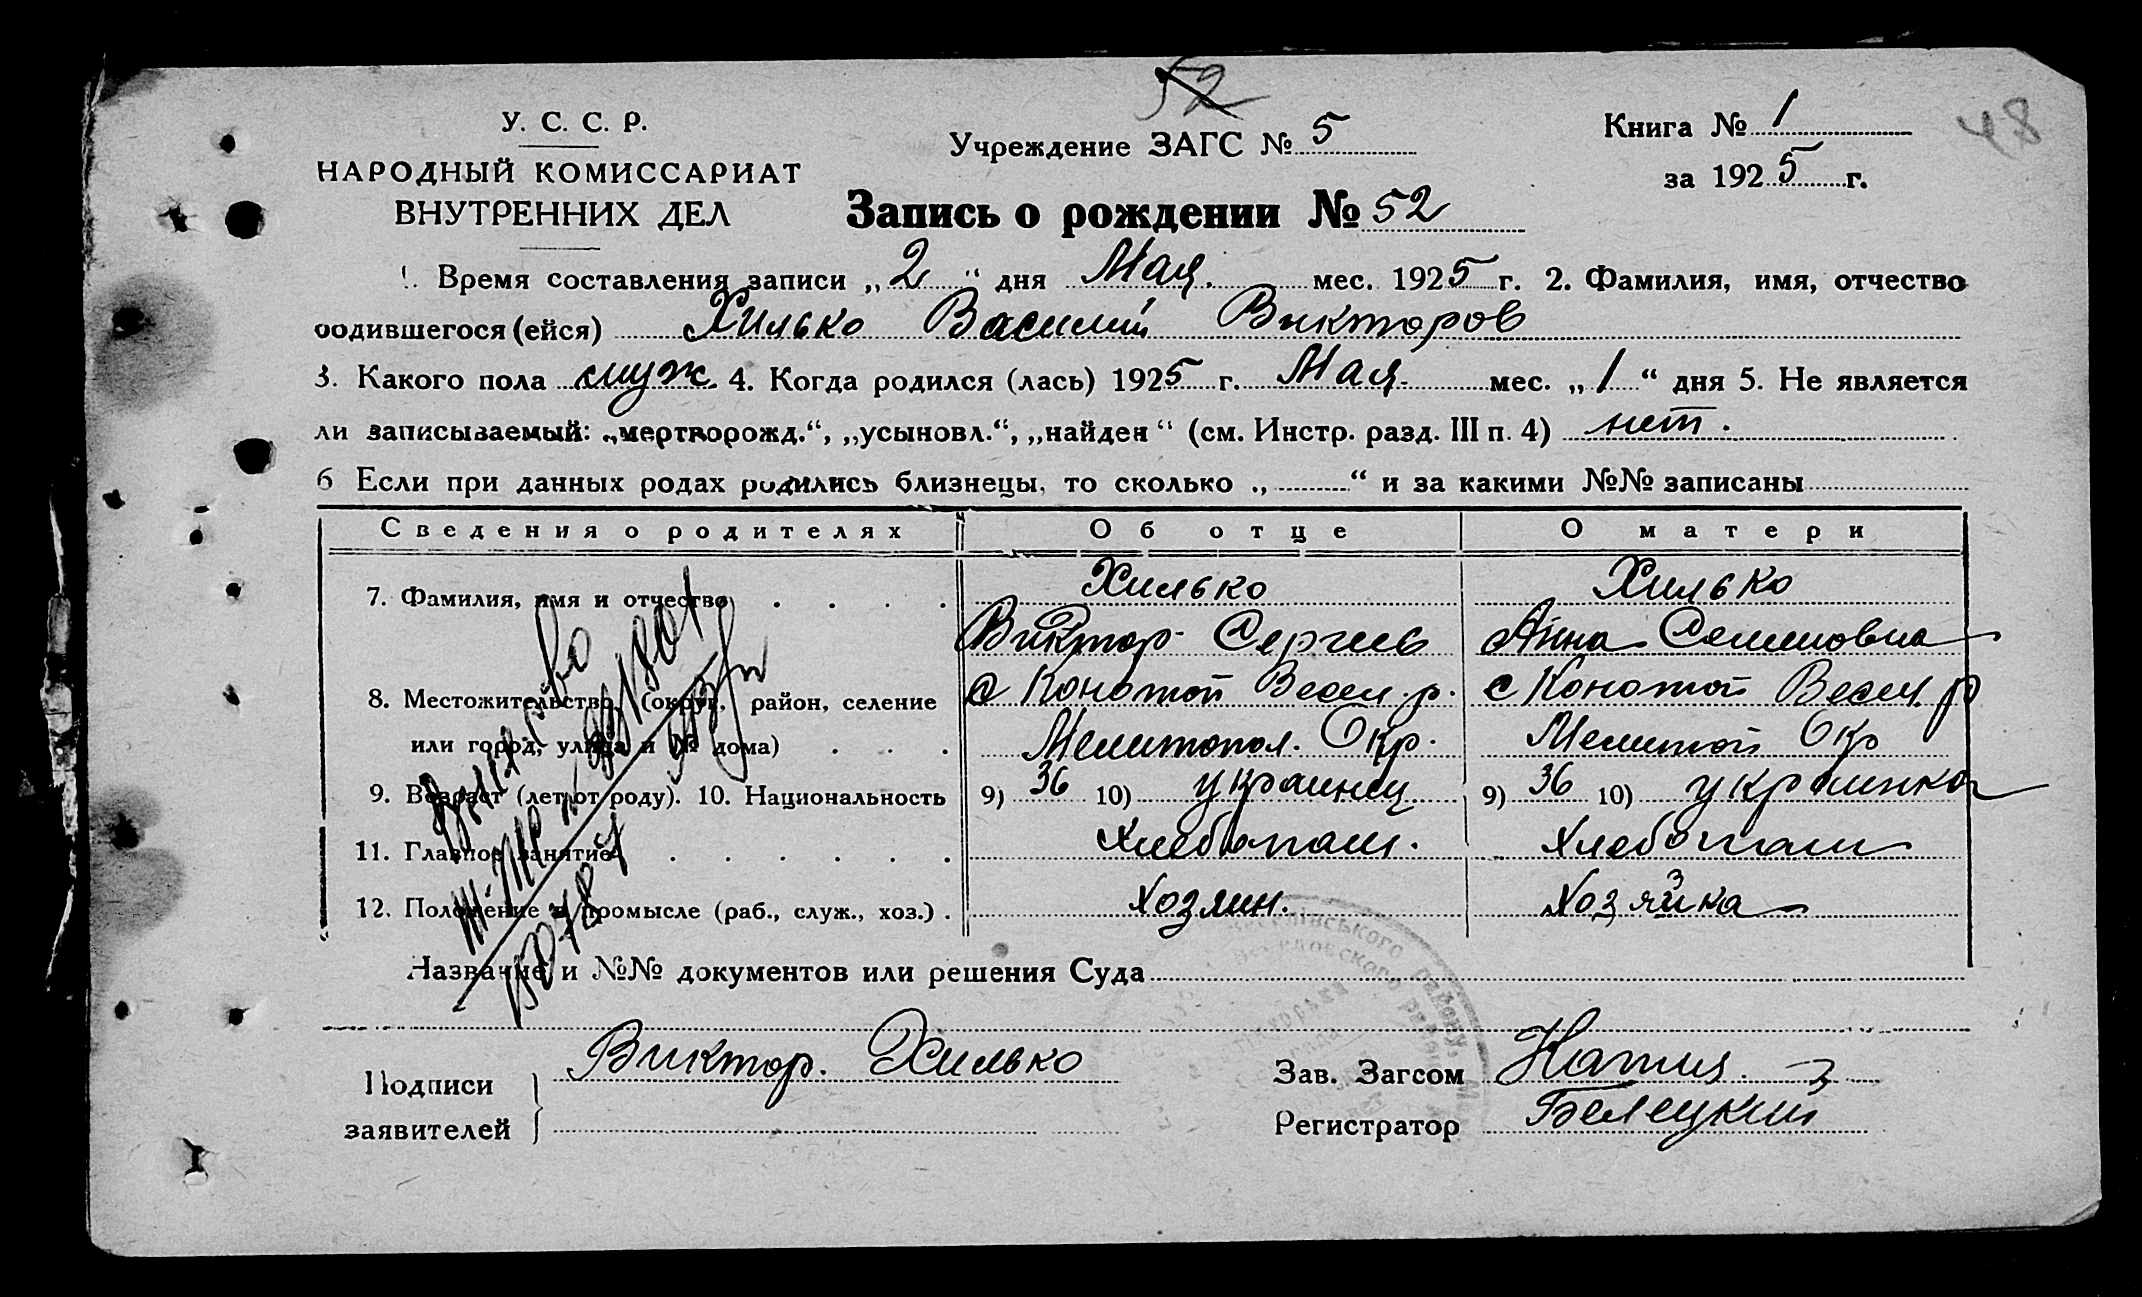 52
У. С. С. Р.
НАРОДНЫЙ КОМИССАРИАТ
ВНУТРЕННИХ ДЕЛ
Учреждение ЗАГС № 5
Книга № 1
48
за 1925 г.
Запись о рождении № 52
1. Время составления записи „2“ дня Мая. мес. 1925 г. 2. Фамилия, имя, отчество
родившегося (ейся) Хилько Василий Викторов
3. Какого пола муж 4. Когда родился (лась) 1925 г. Мая. мес. „1“ дня 5. Не является
ли записываемый: „мертворожд.“, „усыновл.“, „найден“ (см. Инстр. разд. III п. 4) нет.
6 Если при данных родах родились близнецы, то сколько „ “ и за какими №№ записаны
Сведения о родителях Об отце О матери
7. Фамилия, имя и отчество Хилько Хилько
Виктор Сергеев Анна Семеновна
8. Местожительство, (округ, район, селение с Конотоп Весел. р. с Конотоп Весел. р
или город, улица и № дома) Мелитопол. Окр. Мелитоп Окр
9. Возраст (лет от роду). 10. Национальность 9) 36 10) украинец 9) 36 10) украинка
11. Главное занятие Хлебопаш. Хлебопаш
12. Положение в промысле (раб., служ., хоз.) . хозяин. хозяйка
Название и №№ документов или решения Суда
Подписи
заявителей
Виктор. Хилько
Зав. Загсом
Регистратор Белецкий